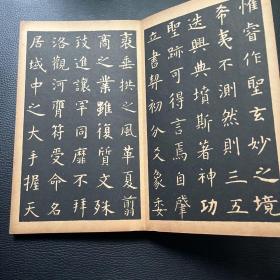 惟睿作聖玄妙之境
希夷不測然則三五
迭興典墳斯著神功
聖跡可得言焉自肇
立書契初分爻象委
裘垂拱之風革夏翦
商之業雖復質文殊
致進讓罔同靡不拜
洛觀河膺符受命名
居域中之大手握天